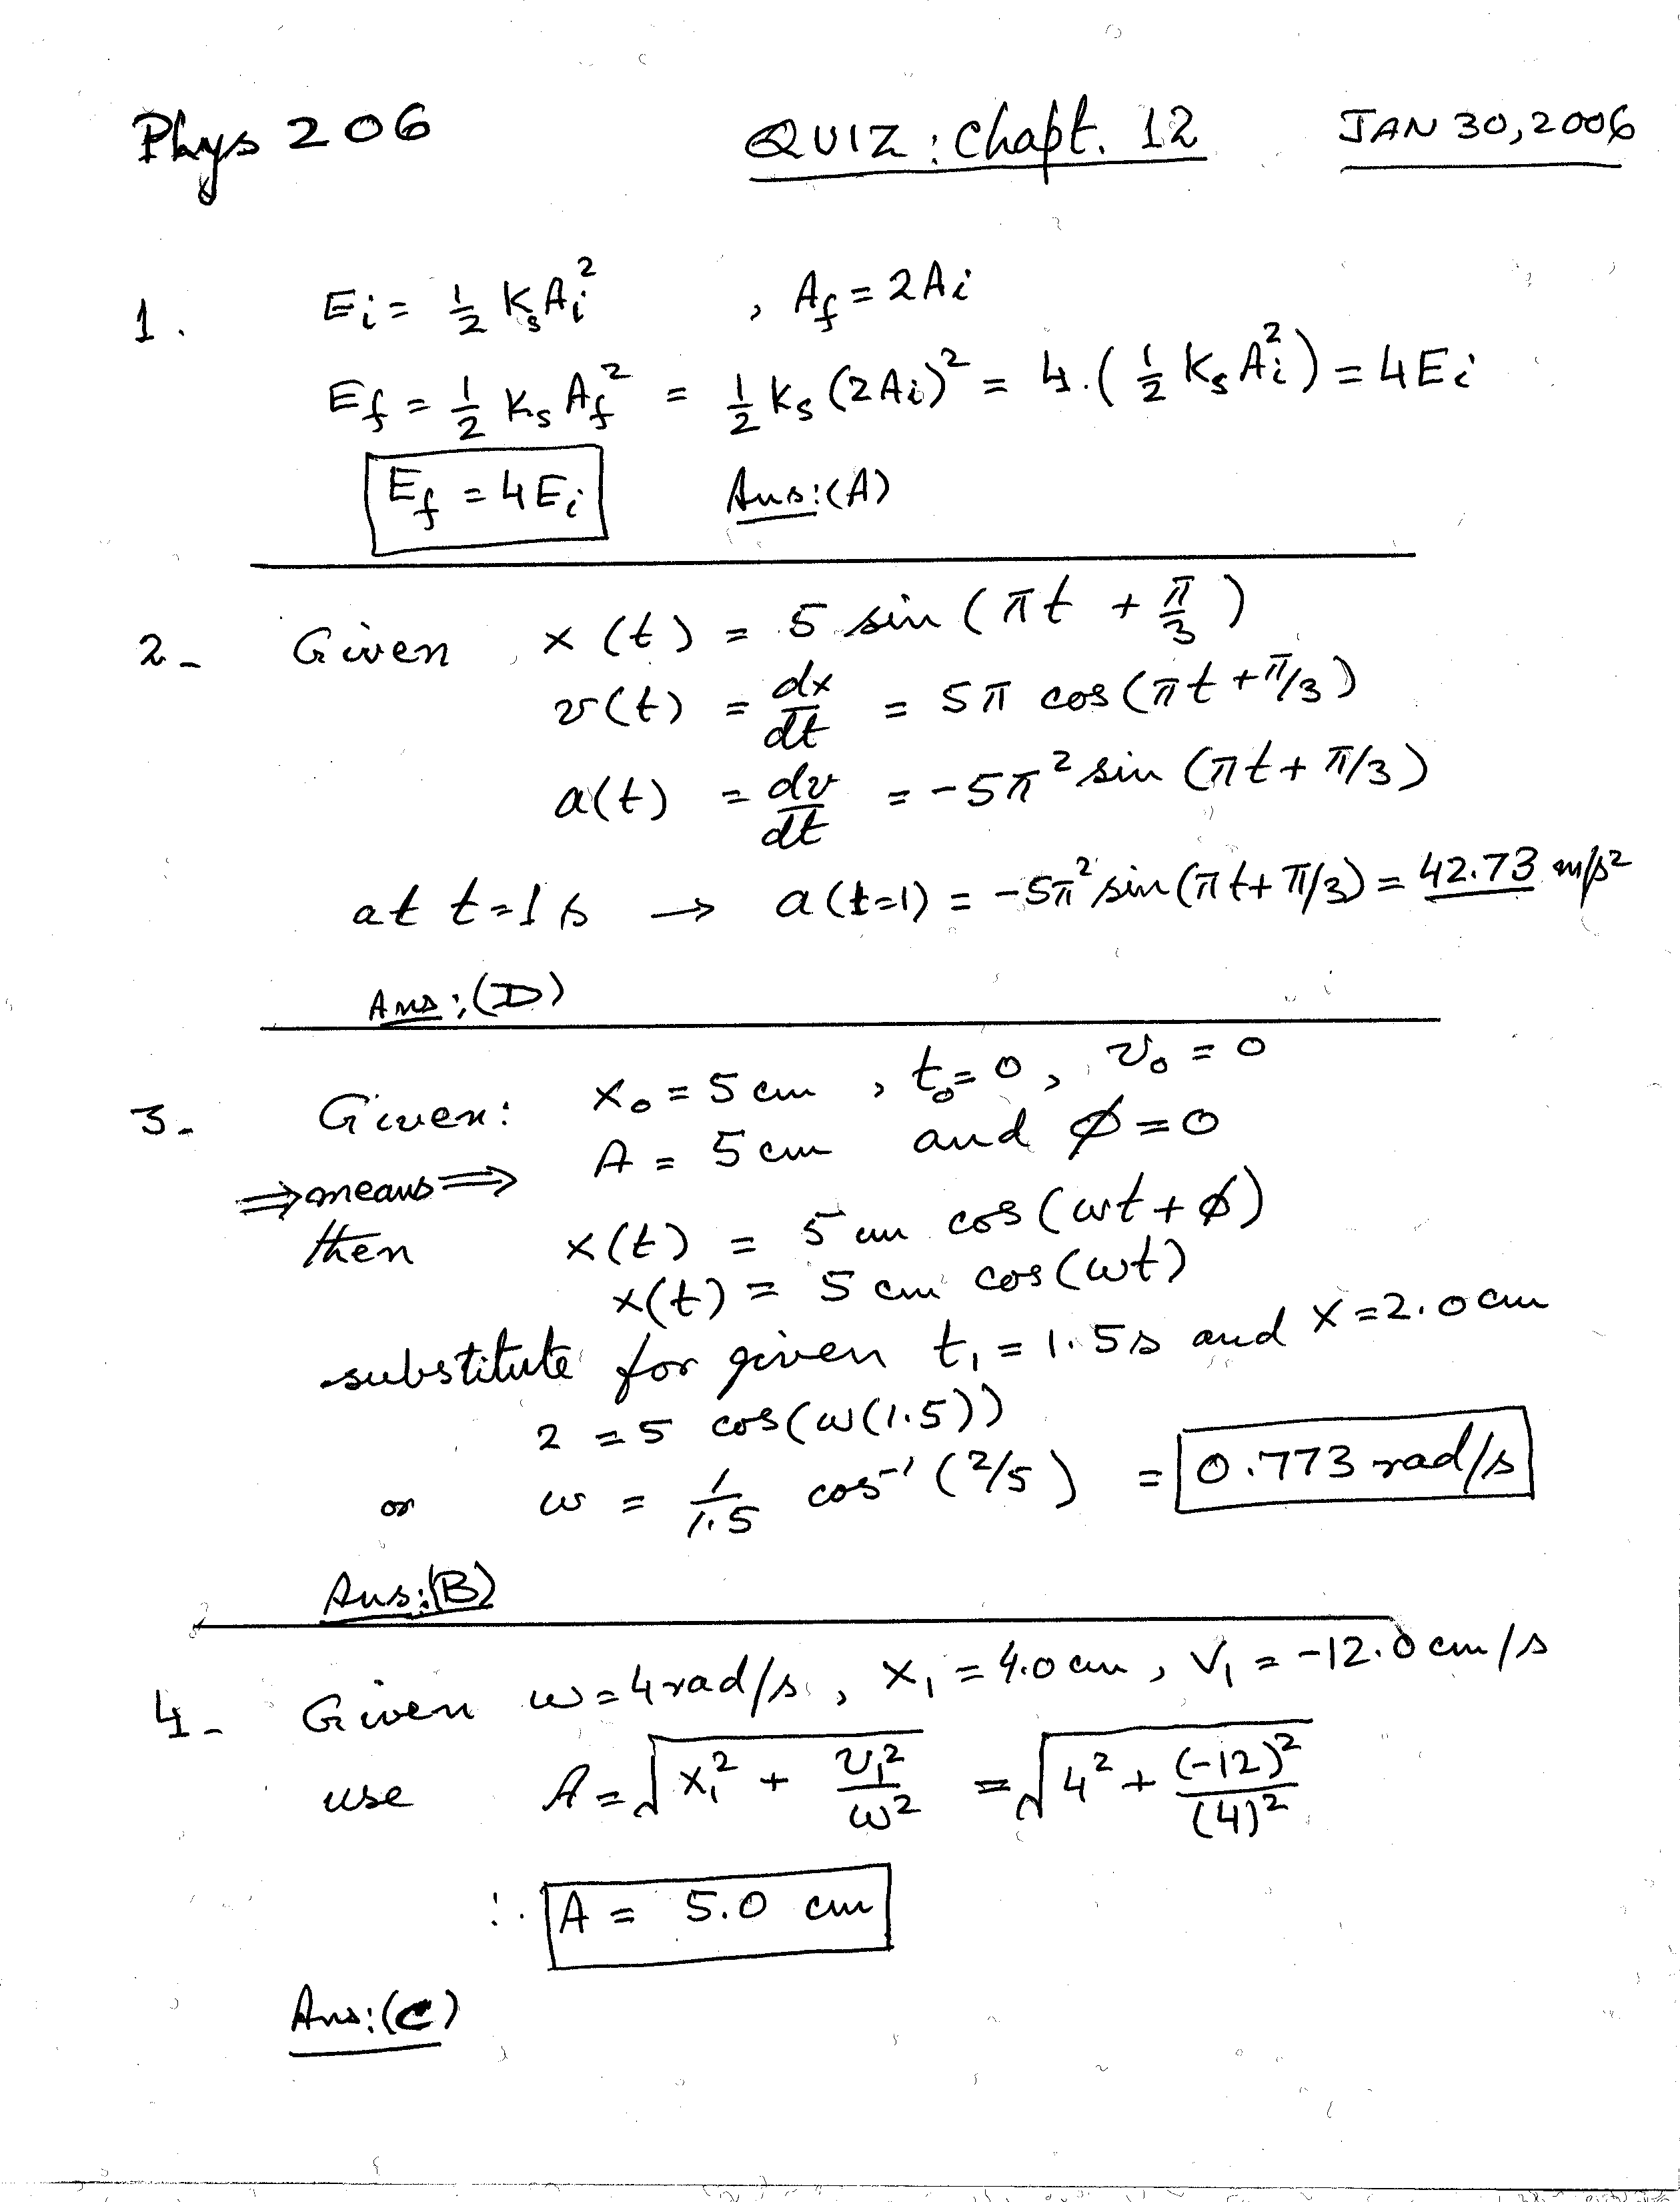 Phys 206 QUIZ : Chapt. 12 JAN 30, 2006
1. Ei = 1/2 KsAi² , Af = 2Ai
Ef = 1/2 Ks Af² = 1/2 Ks (2Ai)² = 4.(1/2 Ks Ai²) = 4Ei
Ef = 4Ei Ans:(A)
2- Given x(t) = 5 sin (πt + π/3)
v(t) = dx/dt = 5π cos(πt + π/3)
a(t) = dv/dt = -5π² sin (πt + π/3)
at t=1s → a(t=1) = -5π² sin(πt + π/3) = 42.73 m/s²
Ans:(D)
3- Given: x₀ = 5 cm , t₀ = 0 , v₀ = 0
⇒means⇒ A = 5 cm and ϕ = 0
then x(t) = 5 cm cos(ωt + ϕ)
x(t) = 5 cm cos(ωt)
substitute for given t₁ = 1.5s and x = 2.0 cm
2 = 5 cos(ω(1.5))
or ω = 1/1.5 cos⁻¹ (2/5) = 0.773 rad/s
Ans:(B)
4- Given ω = 4 rad/s , x₁ = 4.0 cm , V₁ = -12.0 cm/s
use A = √(x₁² + v₁²/ω²) = √(4² + (-12)²/(4)²)
∴ A = 5.0 cm
Ans:(C)